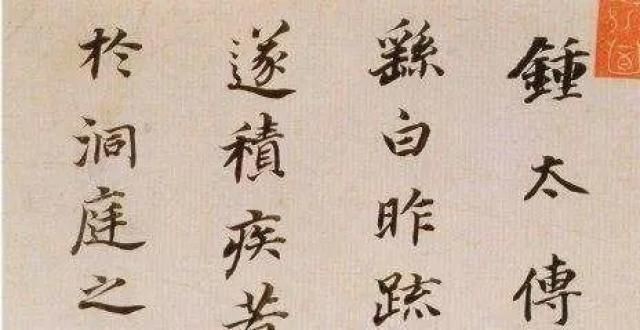 鍾太傅
繇白昨疏
遂積疾苦
於洞庭之